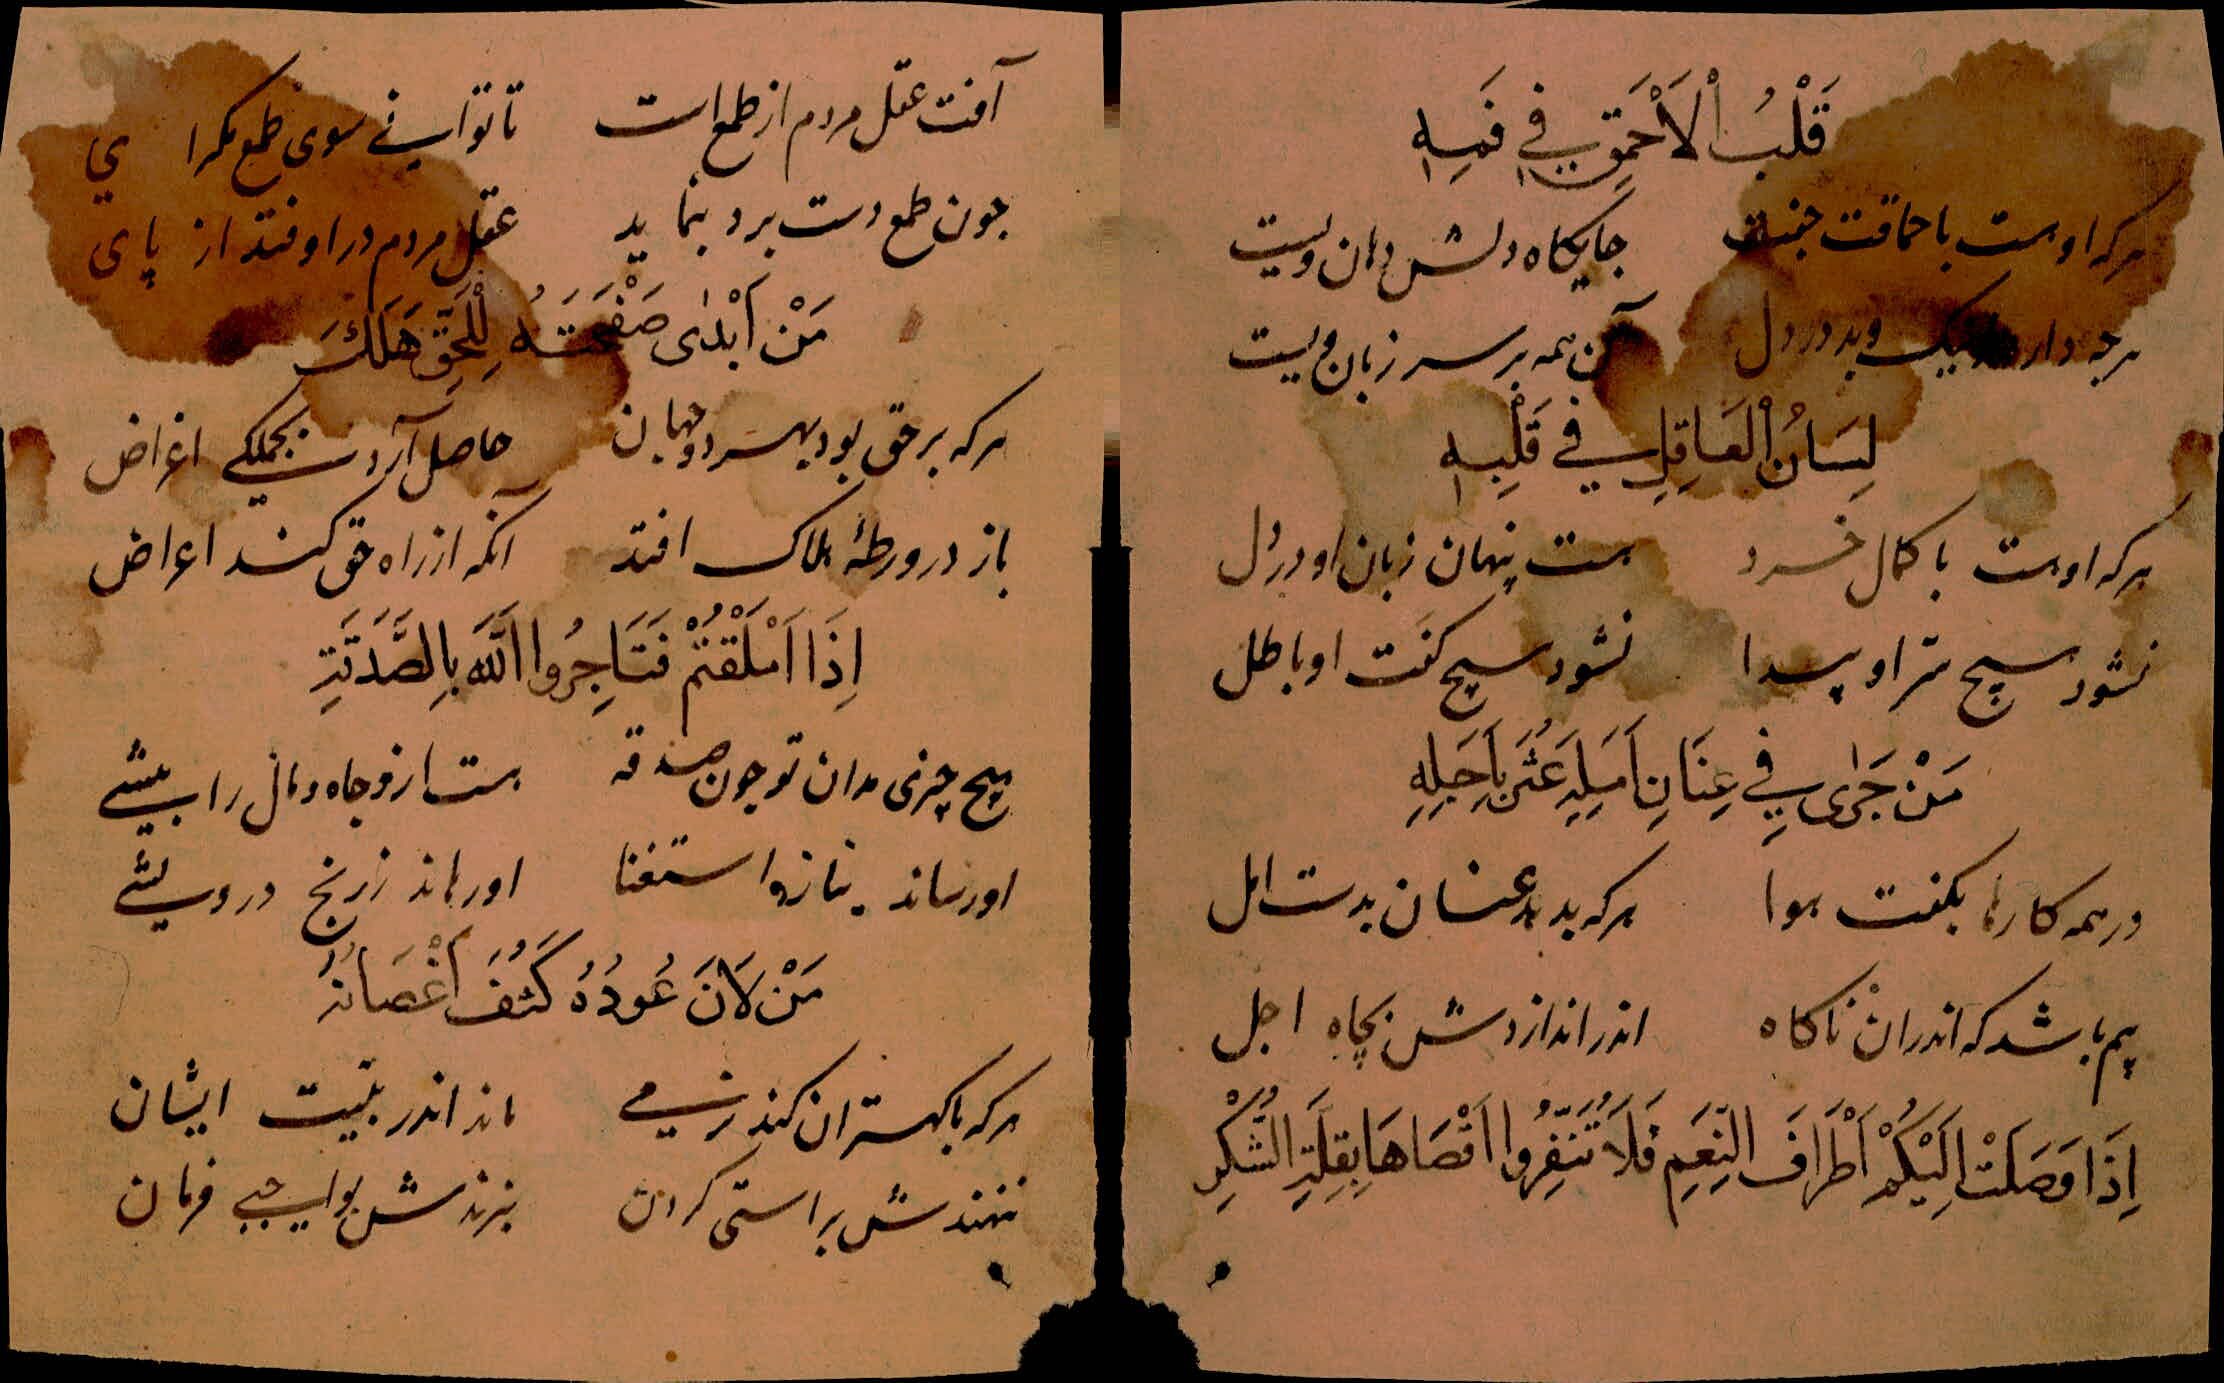 قَلْبُ الْاَحْمَقِ فِي فَمِهِ
هرکه او هست با حماقت جفت جایکاه دلش دهان ویست
هرچه دارد ز نیک و بد در دل آن همه بر سر زبان ویست
لِسَانُ الْعَاقِلِ فِي قَلْبِهِ
هرکه او هست با کمال خرد هست پنهان زبان او در دل
نشود هیچ سر او پیدا نشود هیچ کفت او باطل
مَنْ جَرٰى فِي عِنَانِ اَمَلِهِ عَثَرَ بِاَجَلِهِ
در همه کارها بکفت هوا هرکه بدهد عنان بدست امل
بیم باشد که اندران ناکاه اندر اندازدش بچاه اجل
اِذَا وَصَلَتْ اِلَيْكُمْ اَطْرَافَ النِّعَمِ فَلَا تُنَفِّرُوا اَقْصَاهَا بِقِلَّةِ الشُّكْرِ
آفت عقل مردم از طمع است تا توانی سوی طمع مکرای
جون طمع دست برد بنماید عقل مردم در اوفتد از پای
مَنْ اَبْدٰى صَفْحَتَهُ لِلْحَقِّ هَلَكَ
هرکه بر حق بود بهر دو جهان حاصل آردش بجملکی اغراض
باز در ورطهٔ هلاک افتد آنکه از راه حق کند اعراض
اِذَا اَمْلَقْتُمْ فَتَاجِرُوا اللَّهَ بِالصَّدَقَةِ
هیچ چیزی مدان تو جون صدقه هست ازو جاه و مال را بیشی
او رساند بناز و استغنا او رهاند ز رنج درویشی
مَنْ لَانَ عُودُهُ كَثُفَ اَغْصَانُهُ
هرکه با کهتران کند نرمی ماند اندر بیت ایشان
ننهندش براستی کردن برندش بواجبی فرمان